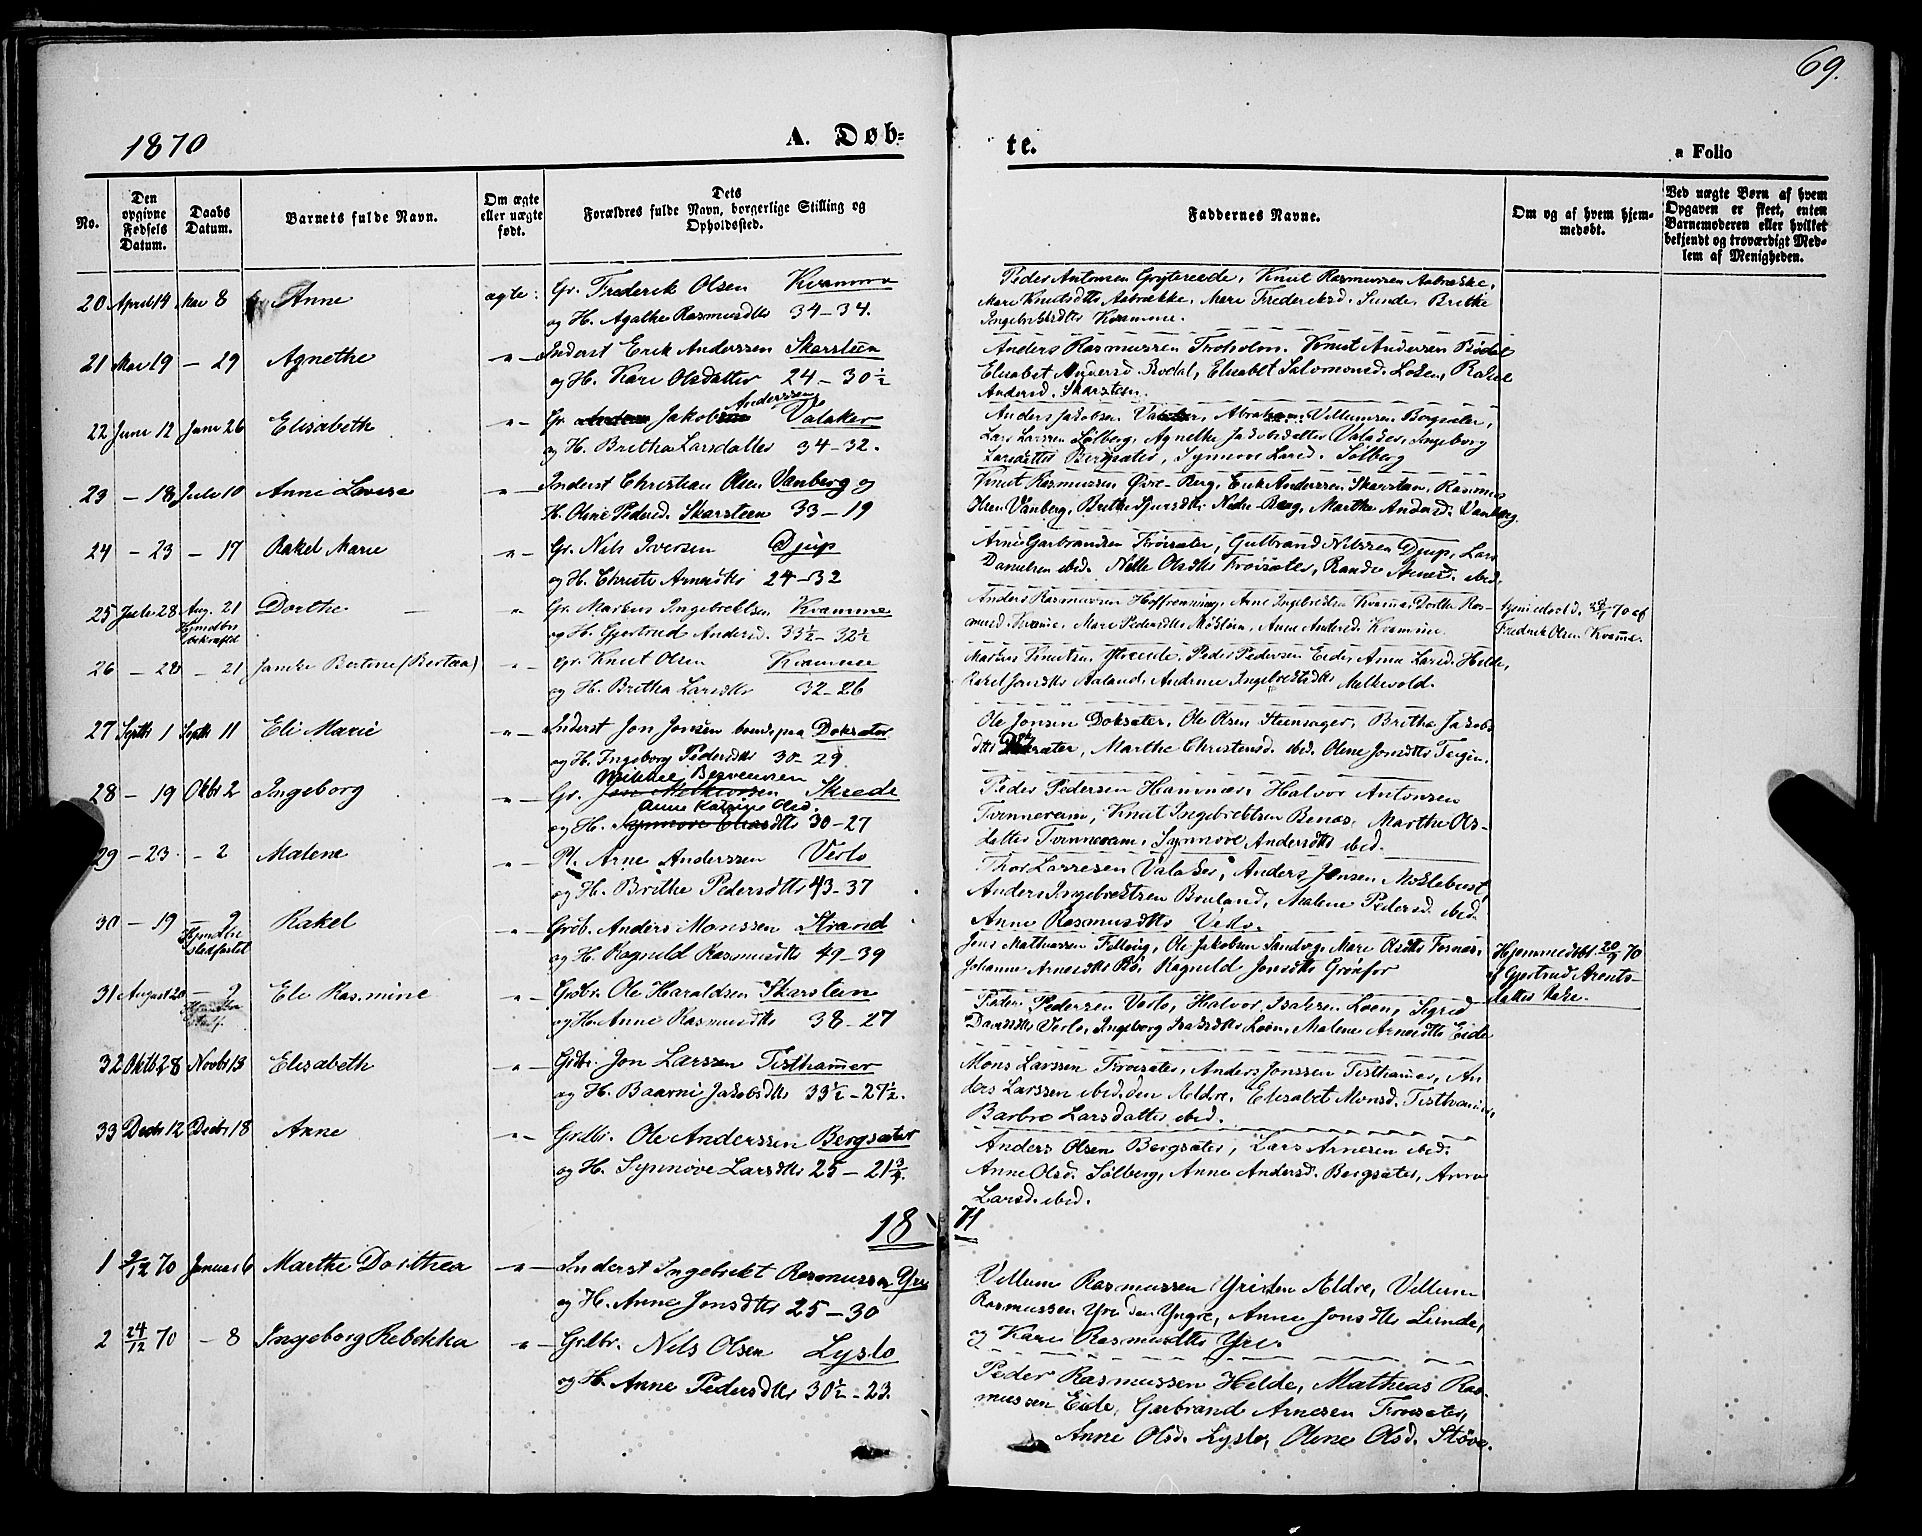 69.
1870
A. Døb=
te.
a Folio
No.
Den opgivne Fødsels Datum.
Daabs Datum.
Barnets fulde Navn.
Om ægte eller uægte født.
Dets Forældres fulde Navn, borgerlige Stilling og Opholdssted.
Faddernes Navne.
Om og af hvem hjemmedøbt.
Ved uægte Børn af hvem Opgaven er skeet, enten Barnemoderen eller hvilket bekjendt og troværdigt Medlem af Menigheden.
20 April 14 Mai 8 Anne ægte: Gr. Frederik Olsen Kvamme
og H. Agathe Rasmusdtr 34-34.
Peder Antonsen Gryterede, Knut Rasmussen Aabrække,
Mari Knutsdtr Aabrække, Mari Frederiksd. Sunde, Brithe
Ingebrigtsdtr Kvamme.
21 Mai 19 - 29 Agnethe -"- Inderst Erik Anderssen Skarsteen
og H. Kari Olsdatter 24-30½
Anders Rasmussen Troholm. Knut Andersen Bødal
Elisabet Andersd Bodal, Elisabet Salomonsd. Loen, Rakel
Andersd. Skarsteen.
22 Juni 12 Juni 26 Elisabeth -"- Gr. Jakob Anderssen Valaker
og H. Britha Larsdatter 34-32.
Anders Jakobsen Valaker, Abraham Villumsen Bergsæter,
Lars Larssen Solberg, Agnethe Jakobsdatter Valaker, Ingeborg
Larsdatter Bergsæter, Synneve Larsd. Solberg
23 - 18 Juli 10 Anne Lovise -"- Inderst Christian Olsen Vanberg og
H. Oline Pedersd. Skarsteen 33-19
Knut Rasmussen Øvre-Berg, Erik Anderssen Skarsteen, Rasmus
Olsen Vanberg, Brithe Sjursdtr Nedre-Berg, Marthe Andersd. Vanberg.
24 - 23 - 17 Rakel Marie -"- Gr. Nils Iversen Djup
og H. Christi Arnesdtr 24-32
Arne Garbrandsen Trøisæter, Gulbrand Nilssen Djup, Lars
Danielsen ibid. Nille Olsdtr Trøisæter, Randi Arnesd. ibid.
25 Juli 28 Aug. 21 Dorthe " Gr. Markus Ingebrektsen Kvamme
Hjemdbn
bekræftet
og H. Gjertrud Andersd. 33½-32½
Anders Rasmussen Hoffrenning, Arne Ingebretsen Kvame, Dorthe Ras-
musd. Kvame, Mari Pedersdtr , Anne Andersd. Kvamme.
70 af
Fredrik Olsen Kvame.
26 - 28 - 21 Jamke Bertine (Bertea) -"- Gr. Knut Olsen Kvamme
og H. Britha Larsdtr 32-26
Markus Knutsen , Peder Pedersen Eide, Anne Larsd. Hilde,
Rakel Jonsdtr Aaland, Andrine Ingebretsdtr Melkevold.
27 Septb 1 Septb 11 Eli Marie -"- Inderst Jon Jonsen paa Doksæter
og H. Ingeborg Pedersdtr 30-29.
Ole Jonsen Doksæter, Ole Olsen Steensager, Brithe Jakobs
dtr Doksæter, Marthe Christensd. ibid. Oline Jonsdtr Tiugen.
28 - 19 Oktbr 2 Ingeborg -"- Gr. Skrede
og H. Anne Katrine Olsd. 30-27
Peder Pedersen Hammer, Halvor Antonsen
Tvinnereim, Knut Ingebrektsen Benæs, Marthe Ols-
datter Tvinnereim, Synnøve Andersdtr ibid.
29 - 23. - 2 Malene -"- Pl. Arne Anderssen Verlo
og H. Brithe Pedersdtr 43-37
Thor Larsesen Valaker, Anders Jonsen Moklebust,
Anders Ingebrektsen Bruland, Malene Pedersd. ibid.
Anne Rasmusdtr Verlo.
30 - 19 - 9 Rakel -"- Grdb. Anders Monssen Strand
Hjemdbn
stadfæstet
og H. Ragnild Rasmusdtr 49-39
Jens Mathiassen Fillvig, Ole Jakobsen Sandvig, Mari Olsdtr Fornæs,
Johanne Arnesdtr Bø, Ragnild Jonsdtr
Hjemmedøbt 20/9 70
af Gjertrud Arents-
datter
31 August 20 - 9 Eli Rasmine -"- Grdbr. Ole Haraldsen Skarsteen
og H. Anne Rasmusdtr 38-27
Peder Pedersen Verlo, Halvor Isaksen Loen, Sigrid
Davidsdtr Verlo, Ingeborg Isaksdtr Loen, Malene Arnesdtr Eide
32 Oktb. 28 Novbr 13 Elisabeth -"- Grdbr. Jon Larssen Tisthamer
og H. Baarni Jakobsdtr 33½-27½.
Mons Larssen Trøisæter, Anders Jonssen Tisthamer, An
ders Larssen ibid. den Ældre, Elisabet Monsd. Tisthamer,
Barbro Larsdatter ibid.
33 Decbr 12 Decbr 18 Anne -"- Grdbr. Ole Anderssen Bergsæter
og H. Synnøve Larsdtr 25-21¾.
Anders Olsen Bergsæter, Lars Arnesen ibid.
Anne Olsd. Solberg, Anne Andersd. Bergsæter, Anne
Larsd. ibid.
1871
1 9/12 70 Januar 6 Marthe Dorthea -"- Inderst Ingebrikt Rasmussen Yri
og H. Anne Jonsdtr 25-30
Villum Rasmussen Yri den Ældre, Villum
Rasmussen Yri den Yngre, Anne Jonsdtr Linde,
og Kari Rasmusdtr Yri.
2 24/12 70 - 8 Ingeborg Rebekka -"- Grdbr. Nils Olsen Lyslo
og H. Anne Pedersdtr 30½-23.
Peder Rasmussen Hilde, Mathias Ras-
mussen Eide, Garbrand Arnesen Trøisæter,
Anne Olsd. Lyslo, Oline Olsd. Støve.